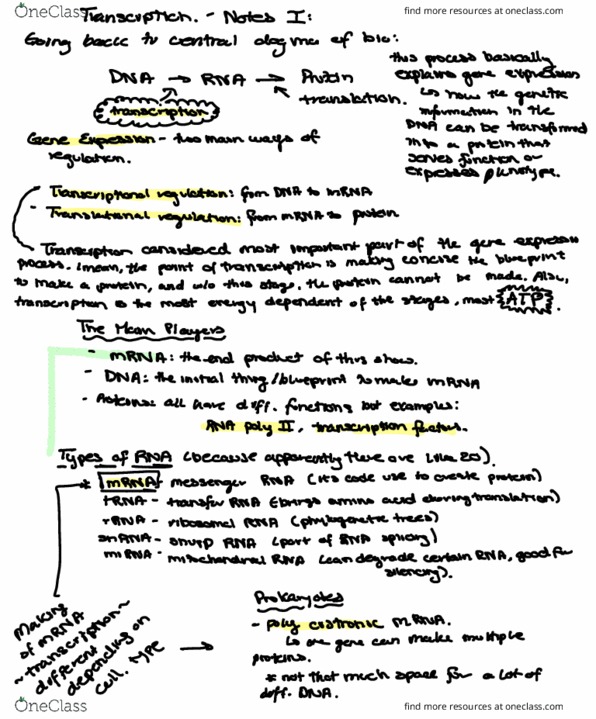 OneClass
find more resources at oneclass.com
Transcription. - Notes I:
Going back to central dogma of bio:
DNA → RNA → Protein
transcription
translation.
this process basically
explains gene expression
↳ how the genetic
information in the
DNA can be transformed
into a protein that
serves function or
expresses phenotype.
Gene Expression - two main ways of
regulation.
- Transcriptional regulation: from DNA to mRNA
- Translational regulation: from mRNA to protein
Transcription considered most important part of the gene express
process. I mean, the point of transcription is making concise the blueprint
to make a protein, and w/o this stage, the protein cannot be made. Also,
transcription is the most energy dependent of the stages, most ATP.
The Main Players
- mRNA: the end product of this show.
- DNA: the initial thing/blueprint to make mRNA
- Proteins: all have diff. functions but examples:
RNA poly II, transcription factors.
Types of RNA (because apparently there are like 20).
* mRNA - messenger RNA (its code use to create protein)
tRNA - transfer RNA (brings amino acid during translation)
rRNA - ribosomal RNA (phylogenetic trees)
snRNA - snurp RNA (part of RNA splicing)
miRNA - mitochondrial RNA (can degrade certain RNA, good for
silencing).
Making
of mRNA
~ transcription ~
different
depending on
cell type →
Prokaryotes
- poly cistronic mRNA.
↳ one gene can make multiple
proteins.
* not that much space for a lot of
diff. DNA.
OneClass
find more resources at oneclass.com